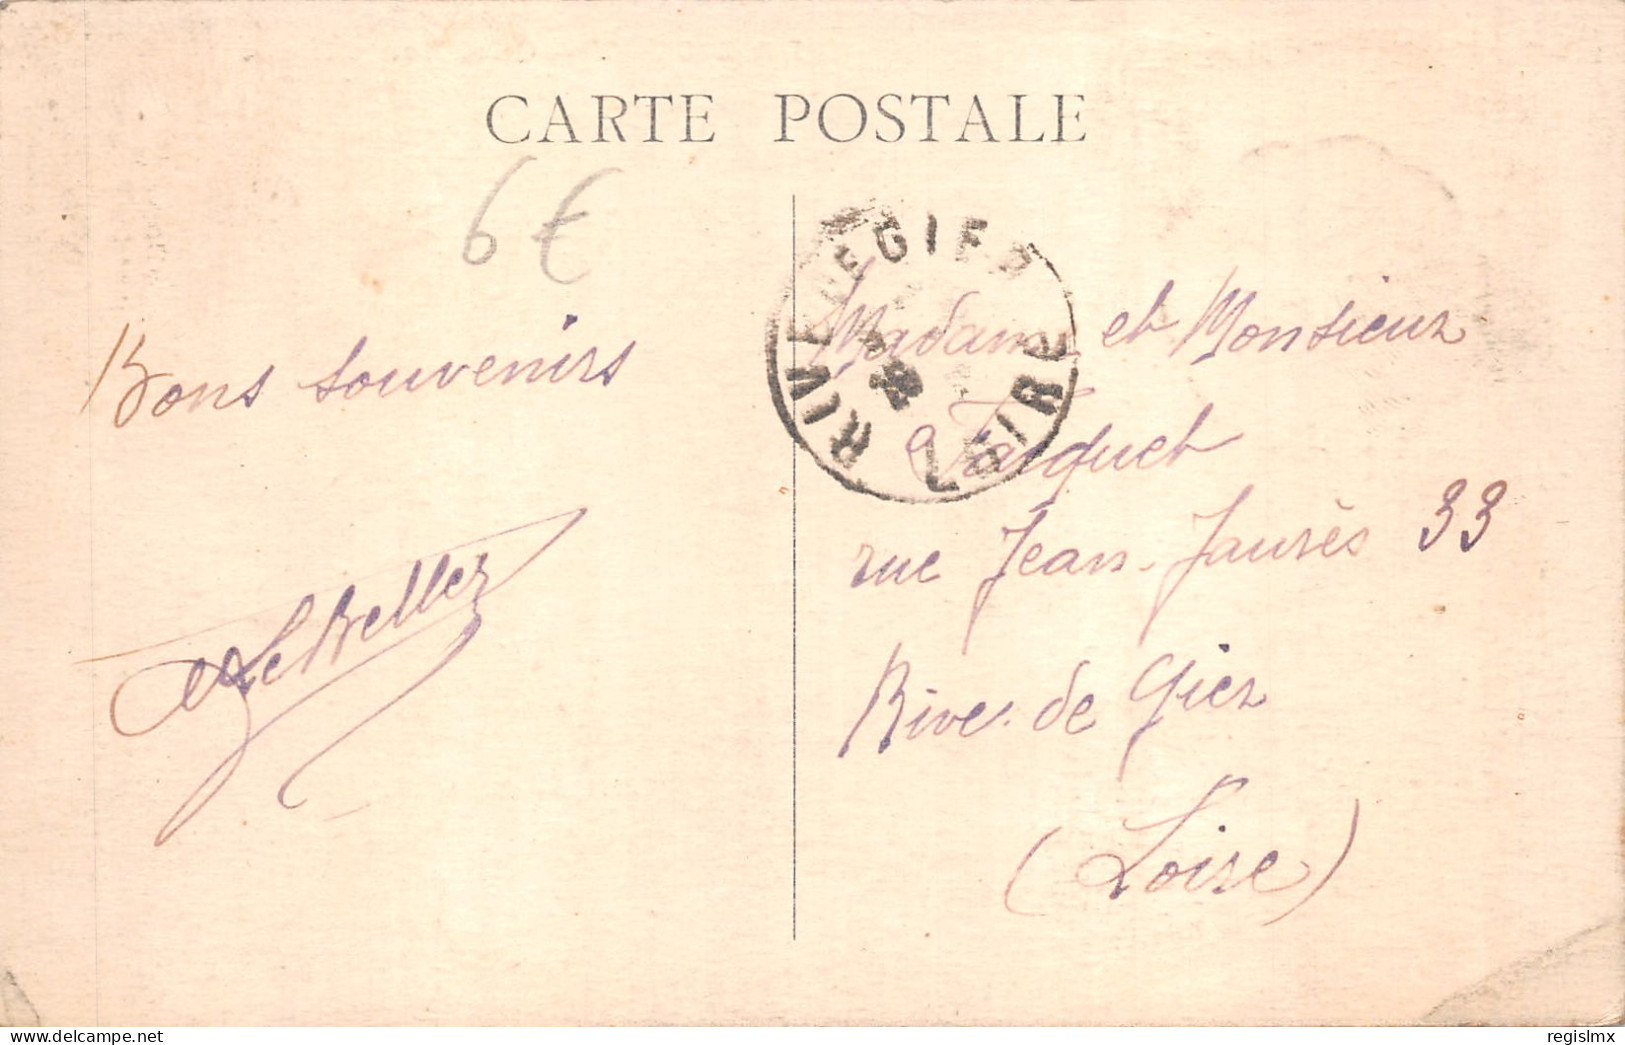 CARTE POSTALE
6€
Bons souvenirs
RIVE DE GIER
LOIRE
Madame et Monsieur
Faiquet
rue Jean-Jaurès 33
Rive de Gier
(Loire)
www.delcampe.net
regislmx